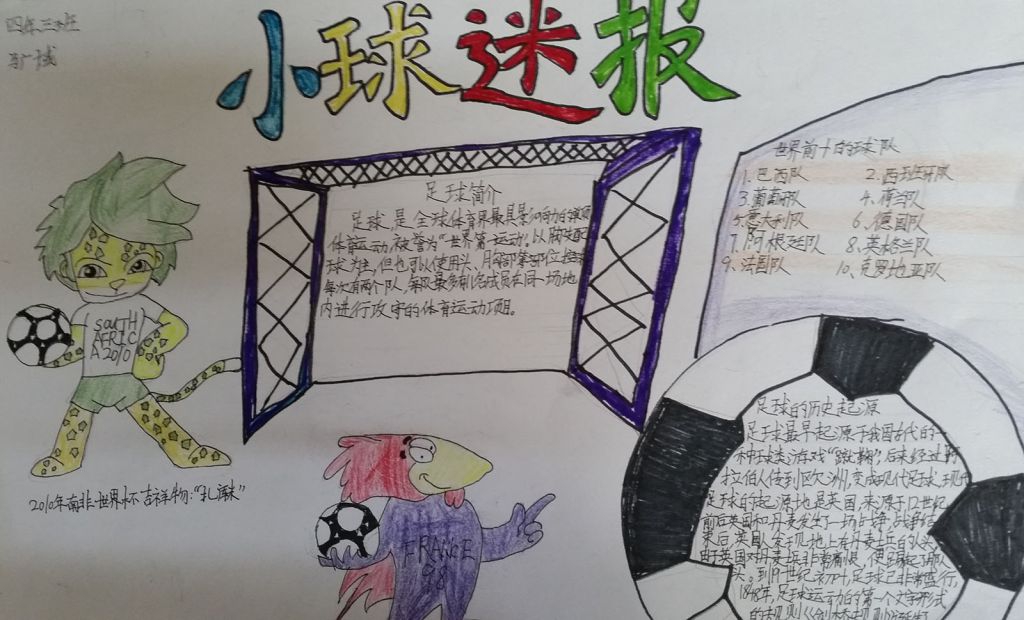 四年三班
小球迷报
足球简介
足球,是全球体育界最具影响力的单项
体育运动,被誉为“世界第一运动”。以脚支配
球为主,但也可以使用头、胸部等部位
每次有两个队,每队最多
内进行攻守的体育运动项目。
世界前十的球队
1. 巴西队
2. 西班牙队
3. 葡萄牙队
4. 荷兰队
5. 意大利队
6. 德国队
7. 阿根廷队
8. 英格兰队
9. 法国队
10. 克罗地亚队
SOUTH
AFRIC
A 2010
2010年南非世界杯吉祥物:“扎库米”
FRANCE
98
足球的历史起源
足球最早起源于我国古代的一
种球类游戏“蹴鞠”,后来经过阿
拉伯人传到欧洲,变成现代足球。现代
足球的起源地是英国,来源于12世纪
前后英国和丹麦发生了一场战争,战争结
束后,英国人
头。到19世纪初叶,足球已非常盛行,
1848年,足球运动的第一个文字形式
的规则《剑桥规则》诞生